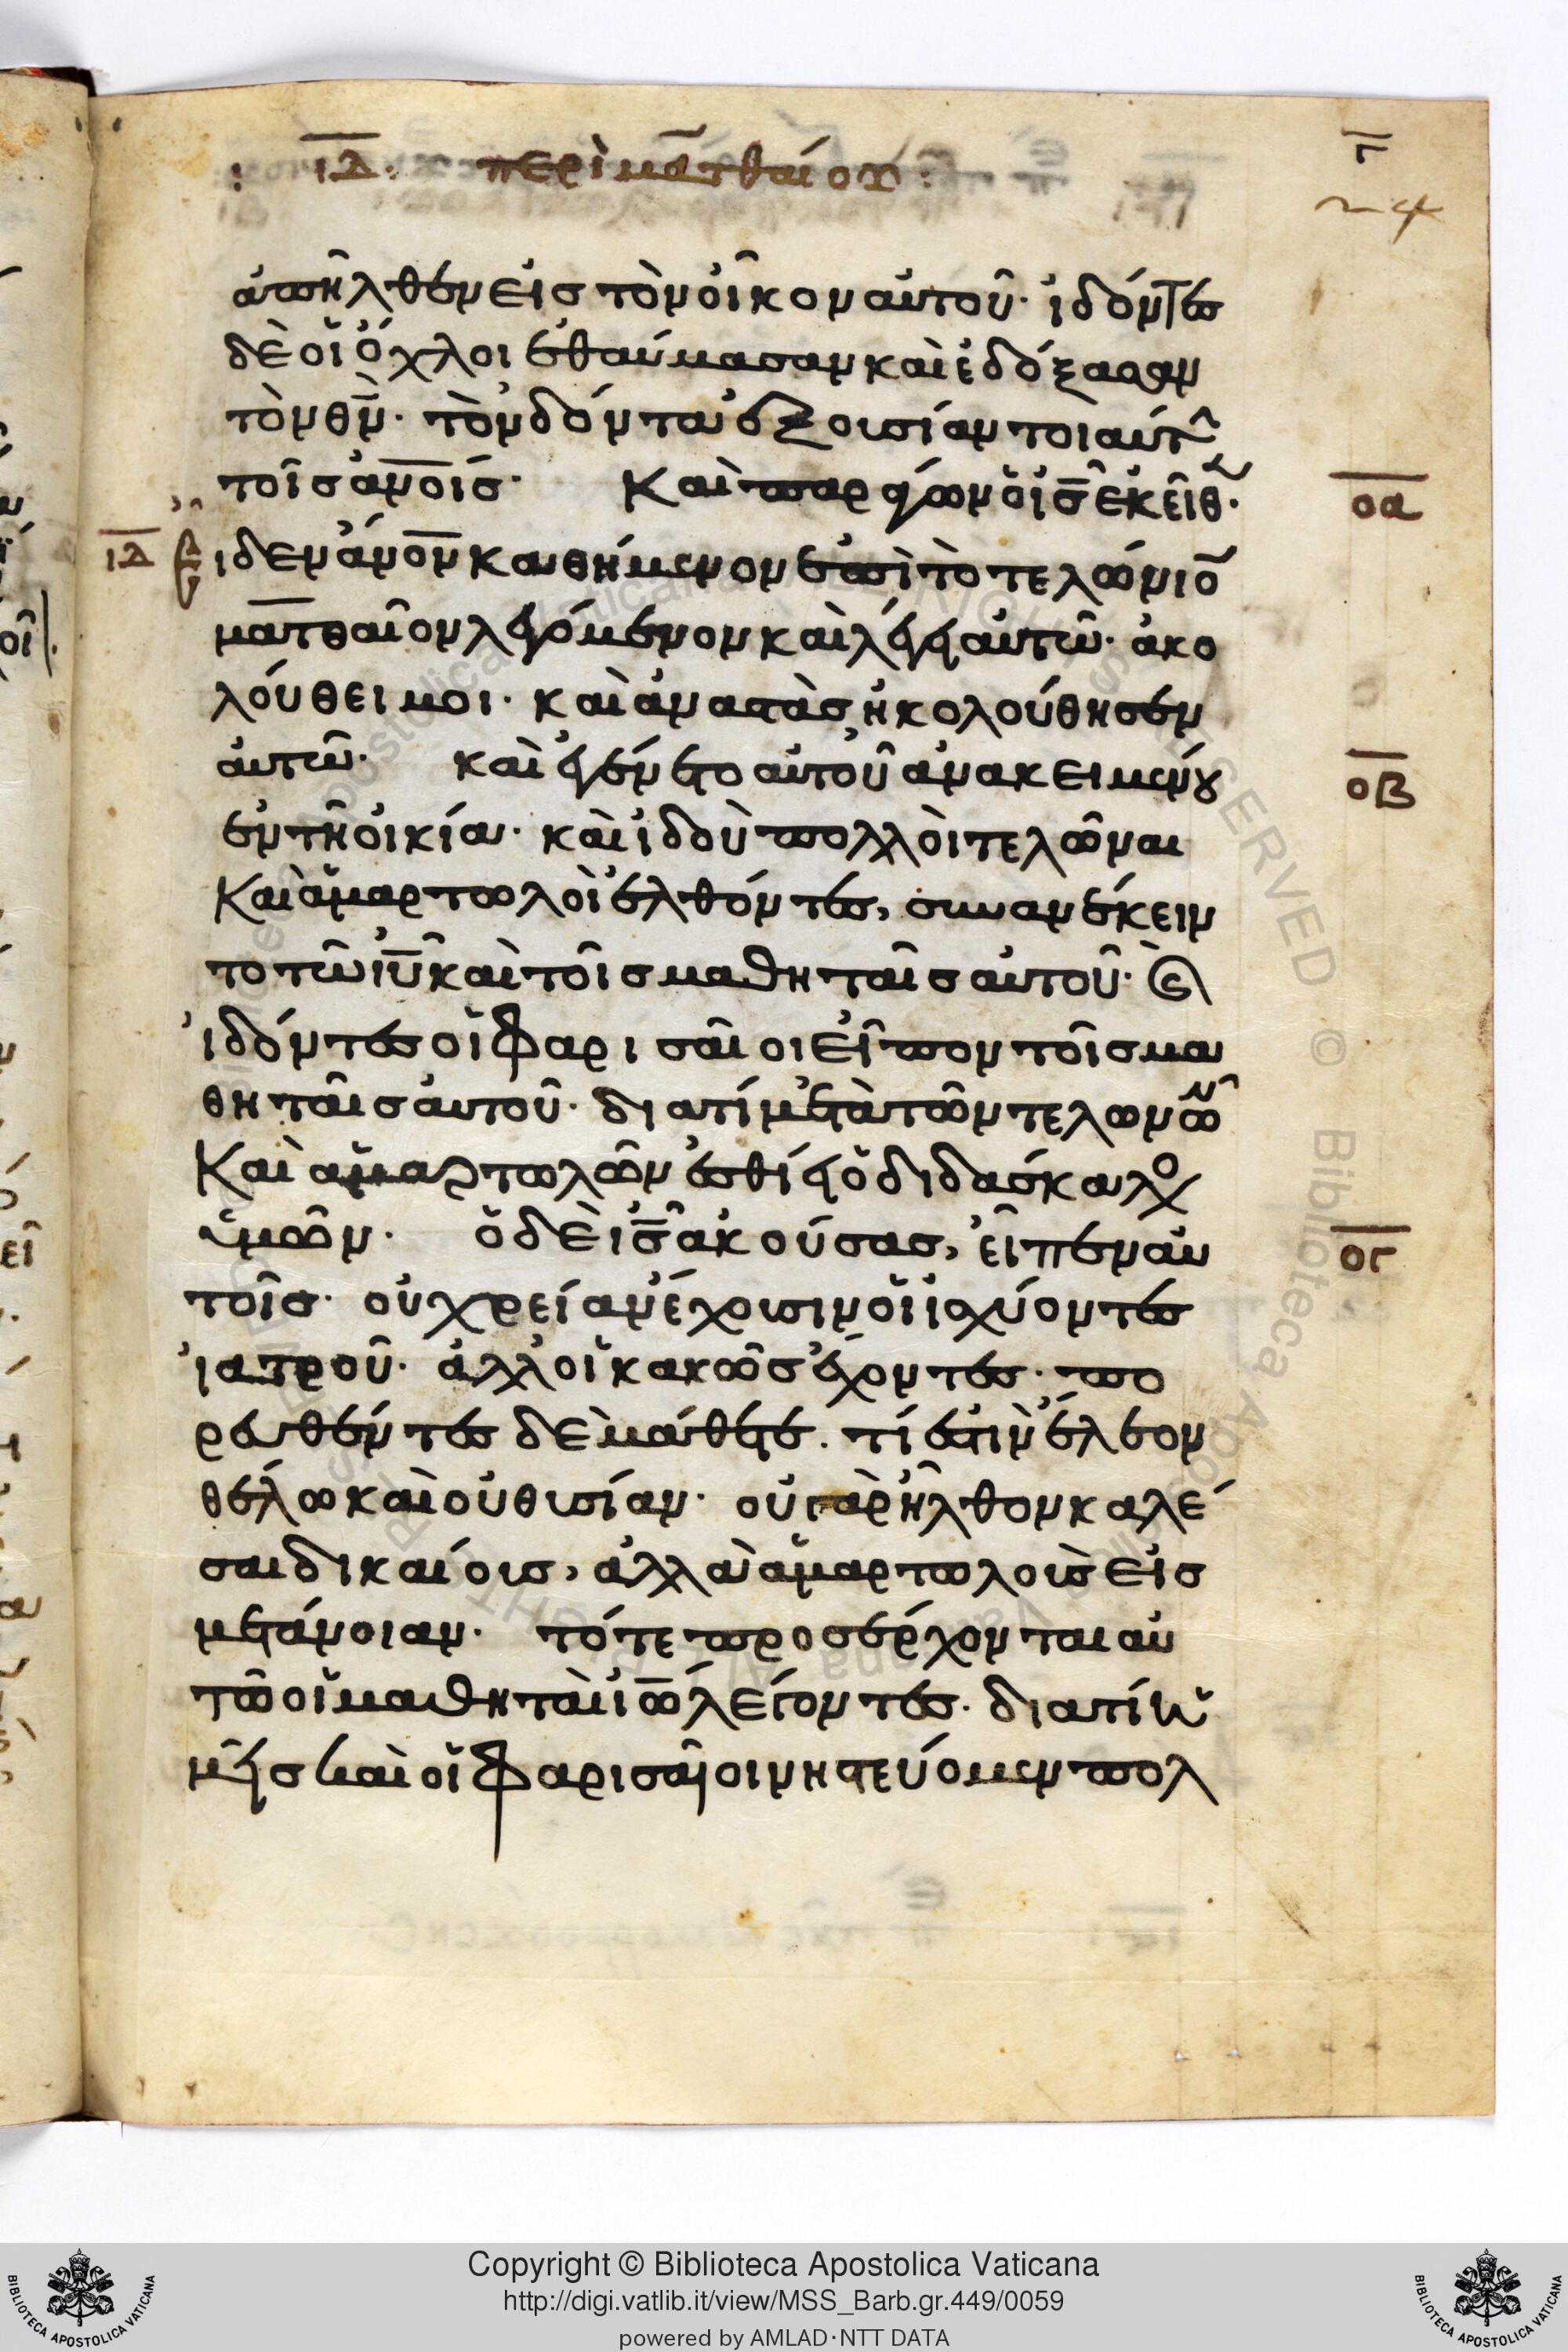 ιδ. περὶ ματθαίου:
γ̅
24
ἀπῆλθεν εἰς τὸν οἶκον αὐτοῦ· ἰδόντες
δὲ οἱ ὄχλοι ἐθαύμασαν καὶ ἐδόξασαν
τὸν θν̅· τὸν δόντα ἐξουσίαν τοιαύτ
τοῖς ἀνοις· Καὶ παράγων ὁ ις̅ ἐκεῖθ·
οα
ιδ ἶδεν ἀνον καθήμενον ἐπὶ τὸ τελώνιο
ματθαῖον λεγόμενον καὶ λέγει αὐτῶ· ἀκο
λούθει μοι· καὶ ἀναστὰς ἠκολούθησεν
αὐτῶ· καὶ ἐγένετο αὐτοῦ ἀνακειμένου
οβ
ἐν τῆ οἰκία· καὶ ἰδοὺ πολλοὶ τελῶναι
Καὶ ἁμαρτωλοὶ ἐλθόντες, συνανέκειν
το τῶ ιυ̅ καὶ τοῖς μαθηταῖς αὐτοῦ· ϗ
ἰδόντες οἱ φαρισαῖοι εἶπον τοῖς μα
θηταῖς αὐτοῦ· διατί μετὰ τῶν τελωνῶ
Καὶ ἁμαρτωλῶν ἐσθίει ὁ διδάσκαλο
ὑμῶν· ὁ δὲ ις̅ ἀκούσας, εἶπεν αὐ
ογ
τοῖς· οὐ χρείαν ἔχουσιν οἱ ἰσχύοντες
ἰατροῦ· ἀλλ οἱ κακῶς ἔχοντες· πο
ρευθέντες δὲ μάθετε· τί ἐστιν ἔλεον
θέλω καὶ οὐ θυσίαν· οὐ γὰρ ἦλθον καλέ
σαι δικαίους, ἀλλὰ ἁμαρτωλοὺς εἰς
μετάνοιαν· τότε προσέρχονται αὐ
τῶ οἱ μαθηταὶ ἰω̅ λέγοντες· διατί ἡ
μεῖς καὶ οἱ φαρισαῖοι νηστεύομεν πολ
Copyright © Biblioteca Apostolica Vaticana
http://digi.vatlib.it/view/MSS_Barb.gr.449/0059
powered by AMLAD·NTT DATA
BIBLIOTECA APOSTOLICA VATICANA
BIBLIOTECA APOSTOLICA VATICANA